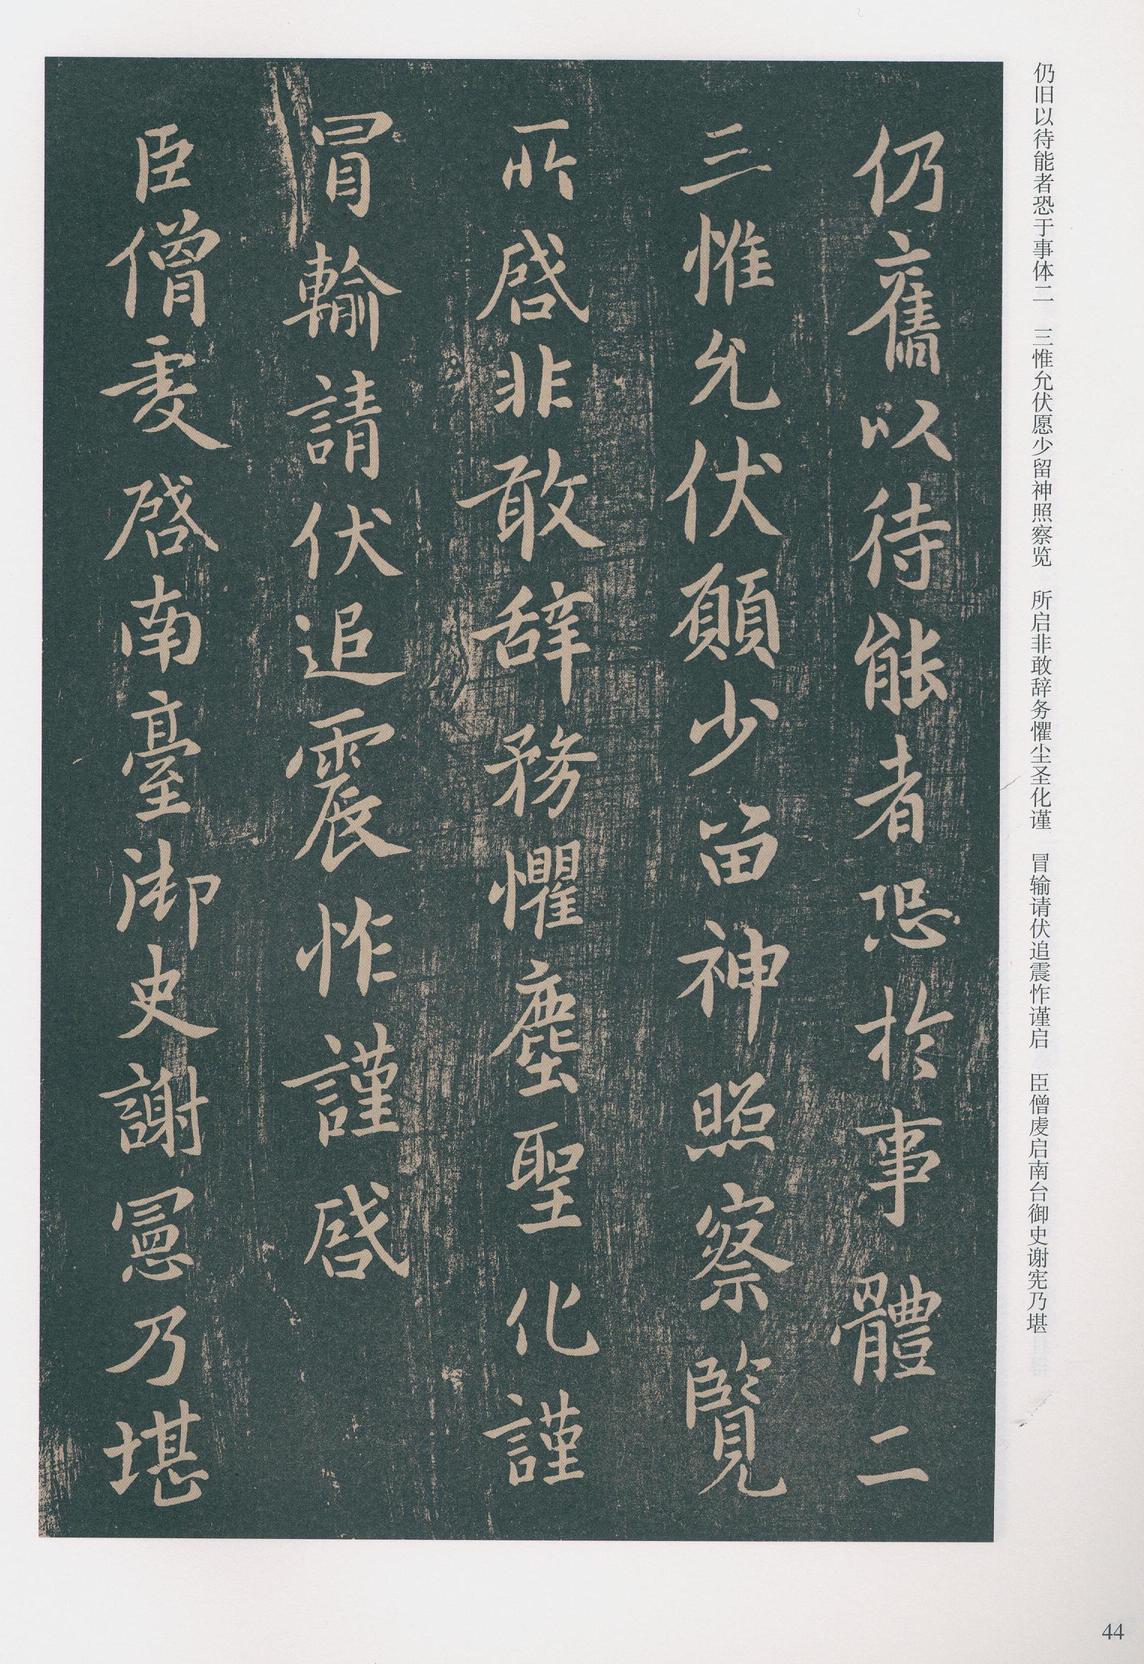 仍旧以待能者恐于事体二　三惟允伏愿少留神照察览　所启非敢辞务惧尘圣化谨　冒输请伏追震怍谨启　臣僧虔启南台御史谢宪乃堪
仍舊以待能者恐於事體二
三惟允伏願少留神照察覽
所啓非敢辞務懼塵聖化謹
冒輸請伏追震怍謹啓
臣僧虔啓南臺御史謝憲乃堪
44